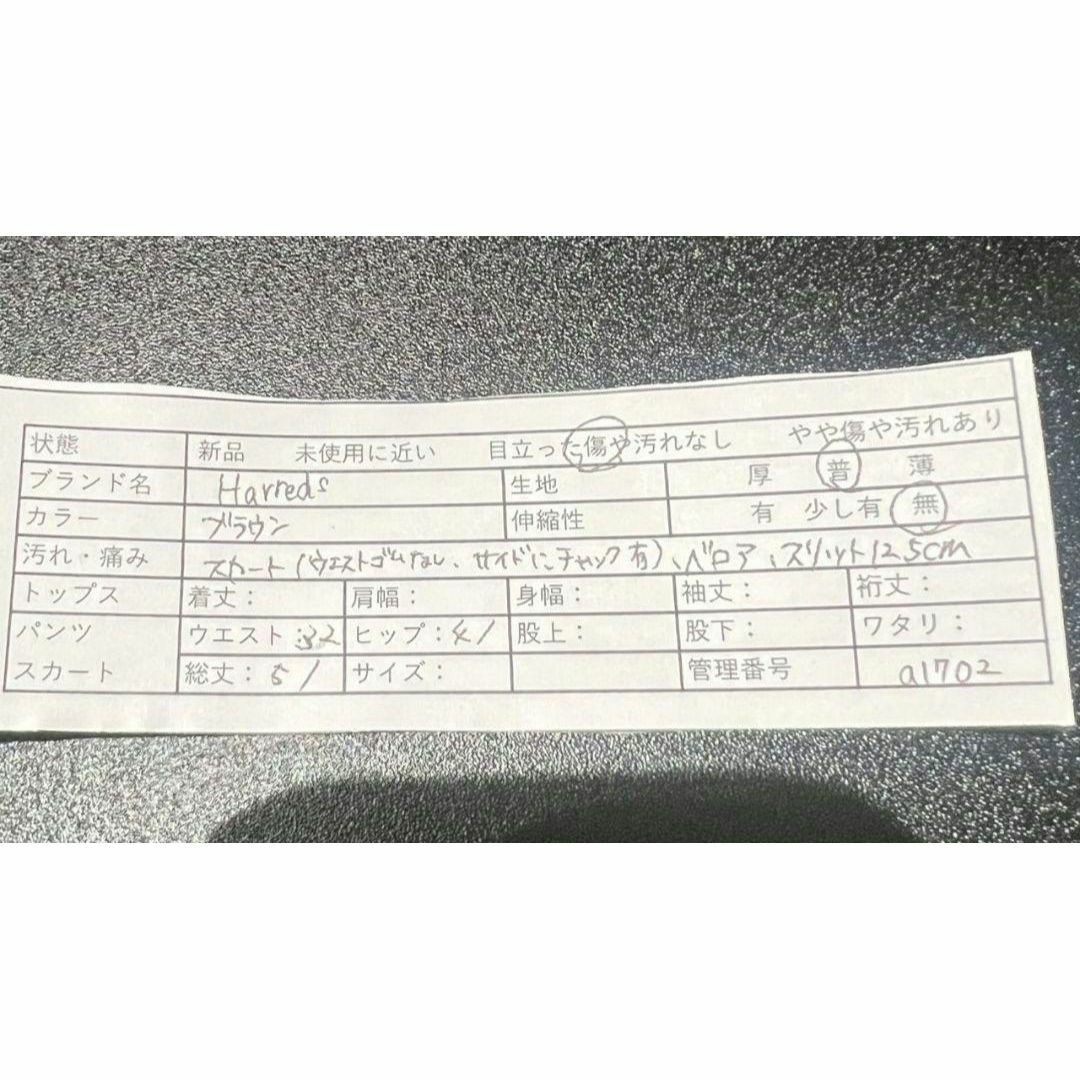 状態 新品 未使用に近い 目立った傷や汚れなし やや傷や汚れあり
ブランド名 Harreds 生地 厚 普 薄
カラー ブラウン 伸縮性 有 少し有 無
汚れ・痛み スカート(ウエストゴムなし、サイドにチャック有)、ベロア、スリット12.5cm
トップス 着丈: 肩幅: 身幅: 袖丈: 裄丈:
パンツ ウエスト:32 ヒップ:41 股上: 股下: ワタリ:
スカート 総丈:51 サイズ: 管理番号 a1702